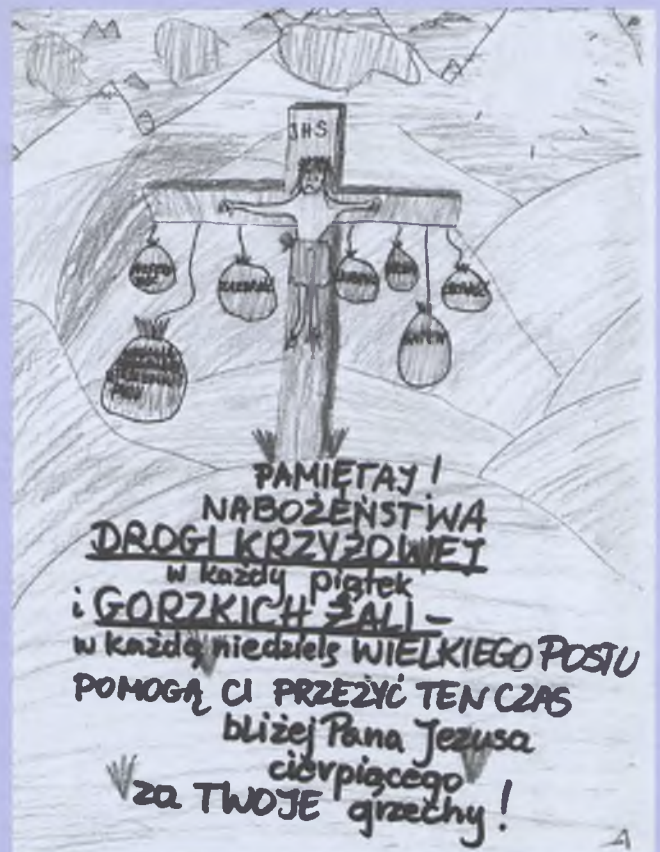 JHS
PAMIĘTAJ !
NABOŻEŃSTWA
DROGI KRZYŻOWEJ
w każdy piątek
i GORZKICH ŻALI –
w każdą niedzielę WIELKIEGO POSTU
POMOGĄ CI PRZEŻYĆ TEN CZAS
bliżej Pana Jezusa
cierpiącego
za TWOJE grzechy !